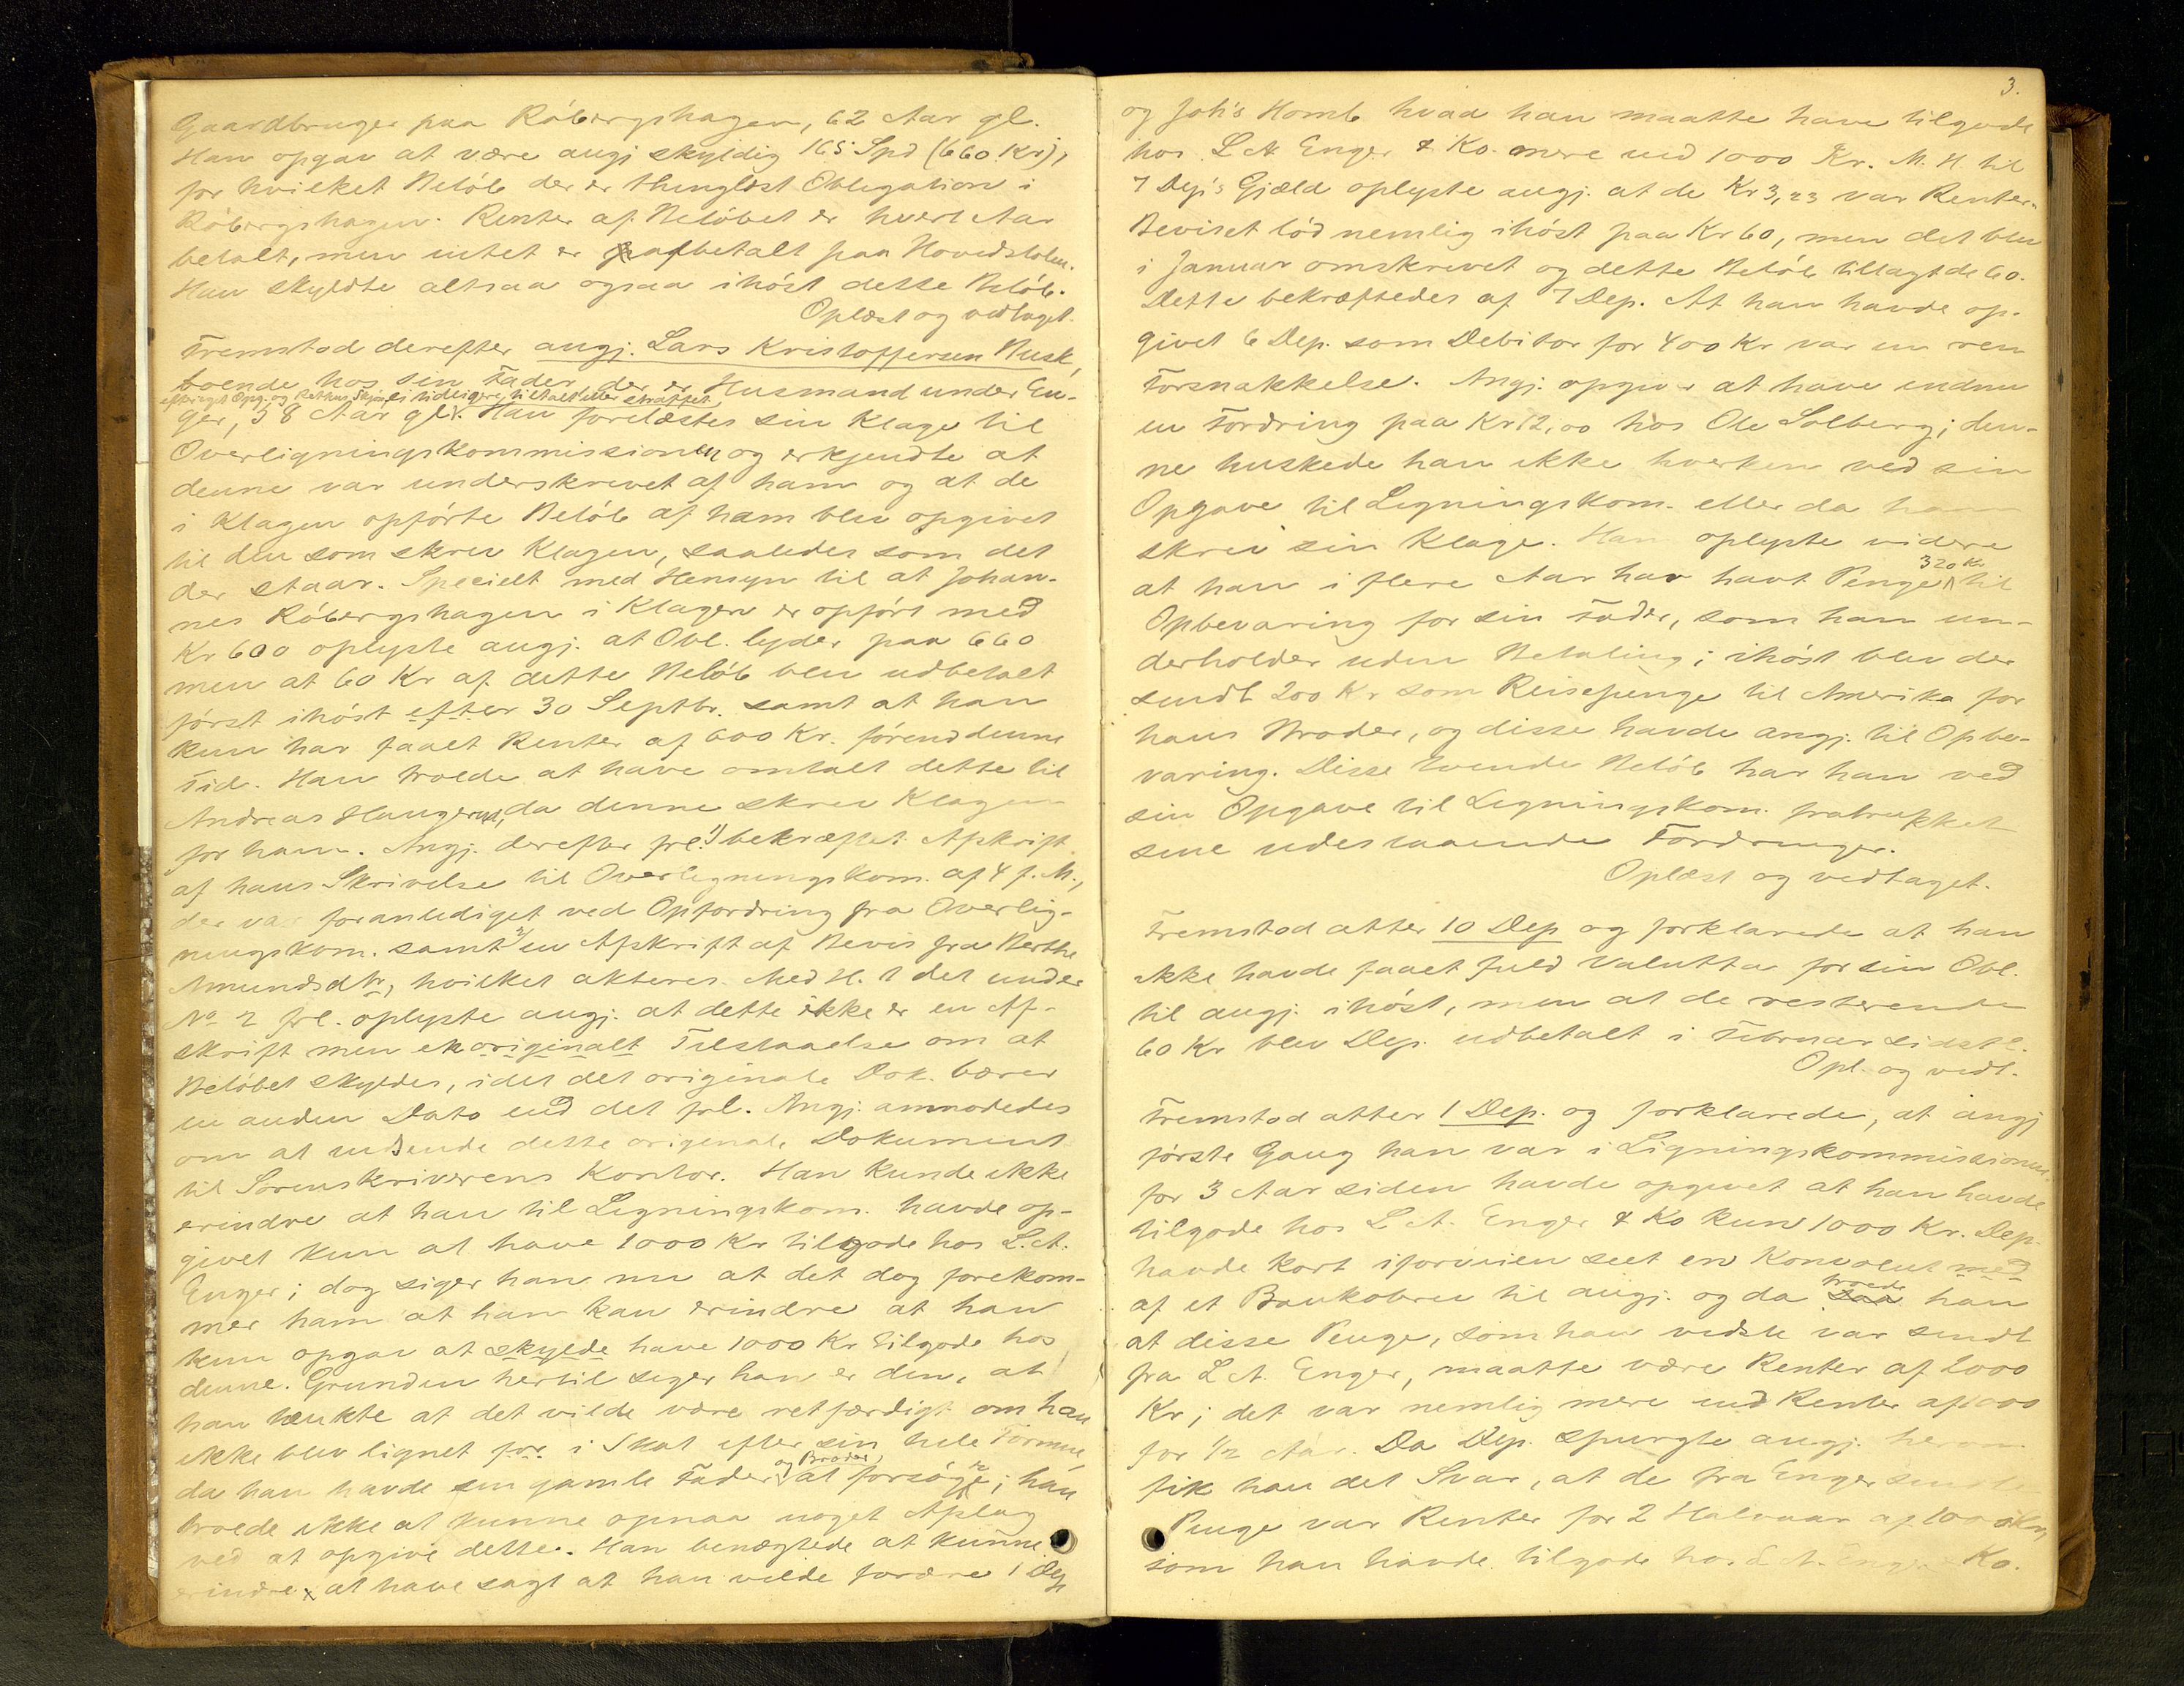 Gaardbruger paa Röbergshagen, 62 Aar gl.
Han opgav at være angj skyldig 165 Spd (660 Kr),
for hvilket Belöb der er thinglæst Obligation i
Röbergshagen. Renter af Belöbet er hvert Aar
betalt, men intet er afbetalt paa Hovedstolen.
Han skyldte altsaa ogsaa ihöst dette Belöb.
Oplæst og vedtaget.
Fremstod derefter angj. Lars Kristoffersen Rusk,
boende hos sin Fader, der er Husmand under En-
efter egt Opg. og Rettens Skjön ei tidligere tiltalt eller straffet
ger, 38 Aar gl. Han forelæstes sin Klage til
Overligningskommissionen og erkjendte at
denne var underskrevet af ham og at de
i Klagen opförte Belöb af ham blev opgivet
til den som skrev Klagen, saaledes som det
der staar. Specielt med Hensyn til at Johan-
nes Röbergshagen i Klagen er opfört med
Kr 600 oplyste angj. at Obl. lyder paa 660
men at 60 Kr af dette Belöb blev udbetalt
först ihöst efter 30 Septbr. samt at han
kun har faaet Renter af 600 Kr. förend denne
Tid. Han troede at have omtalt dette til
Andreas Haugerud, da denne skrev Klagen
for ham. Angj. derefter frl. 1) bekræftet Afskrift
af hans Skrivelse til Overligningskom. af 4 f. M.,
der var foranlediget ved Opfordring fra Overlig-
ningskom. samt 2) en Afskrift af Bevis fra Berthe
Amundsdtr, hvilket akteres. Med H. t det under
No 2 frl. oplyste angj. at dette ikke er en Af-
skrift men en originalt Tilstaaelse om at
Belöbet skyldes, idet det originale Dok. bærer
en anden Dato end det frl. Angj. anmodedes
om at indsende dette originale Dokument
til Sorenskriverens Kontor. Han kunde ikke
erindre at han til Ligningskom. havde op-
givet kun at have 1000 Kr tilgode hos L. A.
Enger; dog siger han nu at det dog forekom-
mer ham at han kan erindre at han
kun opgav at skylde have 1000 Kr tilgode hos
denne. Grunden hertil siger han er den, at
han tænkte at det vilde være retfærdigt om han
ikke blev lignet for i Skat efter sin hele Formue,
da han havde sin gamle Fader og Broder at forsörge; han
troede ikke at kunne opnaa noget Afslag
ved at opgive dette. Han benægtede at kunne
erindre at have sagt at han vilde forære 1 Dep
3.
og Joh's Homb hvad han maatte have tilgode
hos L A Enger & Ko. mere end 1000 Kr. M. H til
7 Dep's Gjæld oplyste angj. at de Kr 3,23 var Renter.
Beviset löd nemlig ihöst paa Kr 60, men det blev
i Januar omskrevet og dette Belöb tillagt de 60.
Dette bekræftedes af 7 Dep. At han havde op-
givet 6 Dep. som Debitor for 400 Kr var en ren
Forsnakkelse. Angj. opgav at have endnu
en Fordring paa Kr 12,00 hos Ole Solberg; den-
ne huskede han ikke hverken ved sin
Opgave til Ligningskom. eller da han
skrev sin Klage. Han oplyste videre
at han i flere Aar har havt Penge 320 Kr til
Opbevaring for sin Fader, som han un-
derholder uden Betaling; ihöst blev der
sendt 200 Kr som Reisepenge til Amerika for
hans Broder, og disse havde angj. til Opbe-
varing. Disse tvende Belöb har han ved
sin Opgave til Ligningskom. fratrukket
sine udestaaende Fordringer.
Oplæst og vedtaget.
Fremstod atter 10 Dep og forklarede at han
ikke havde faaet fuld Valutta for sin Obl.
til angj. ihöst, men at de resterende
60 Kr blev Dep. udbetalt i Februar sidstl.
Opl. og vedt.
Fremstod atter 1 Dep. og forklarede, at angj
förste Gang han var i Ligningskommissionen
for 3 Aar siden havde opgivet at han havde
tilgode hos L. A. Enger & Ko kun 1000 Kr. Dep.
havde kort iforveien seet en Konvolut med
af et Bankobrev til angj. og da troede han
at disse Penge, som han vidste var sendt
fra L A. Enger, maatte være Renter af 2000
Kr; det var nemlig mere end Renter af 1000
for 1/2 Aar. Da Dep. spurgte angj. herom
fik han det Svar, at de fra Enger sendte
Penge var Renter for 2 Halvaar af 1000 Kr,
som han havde tilgode hos L A. Enger & Ko.